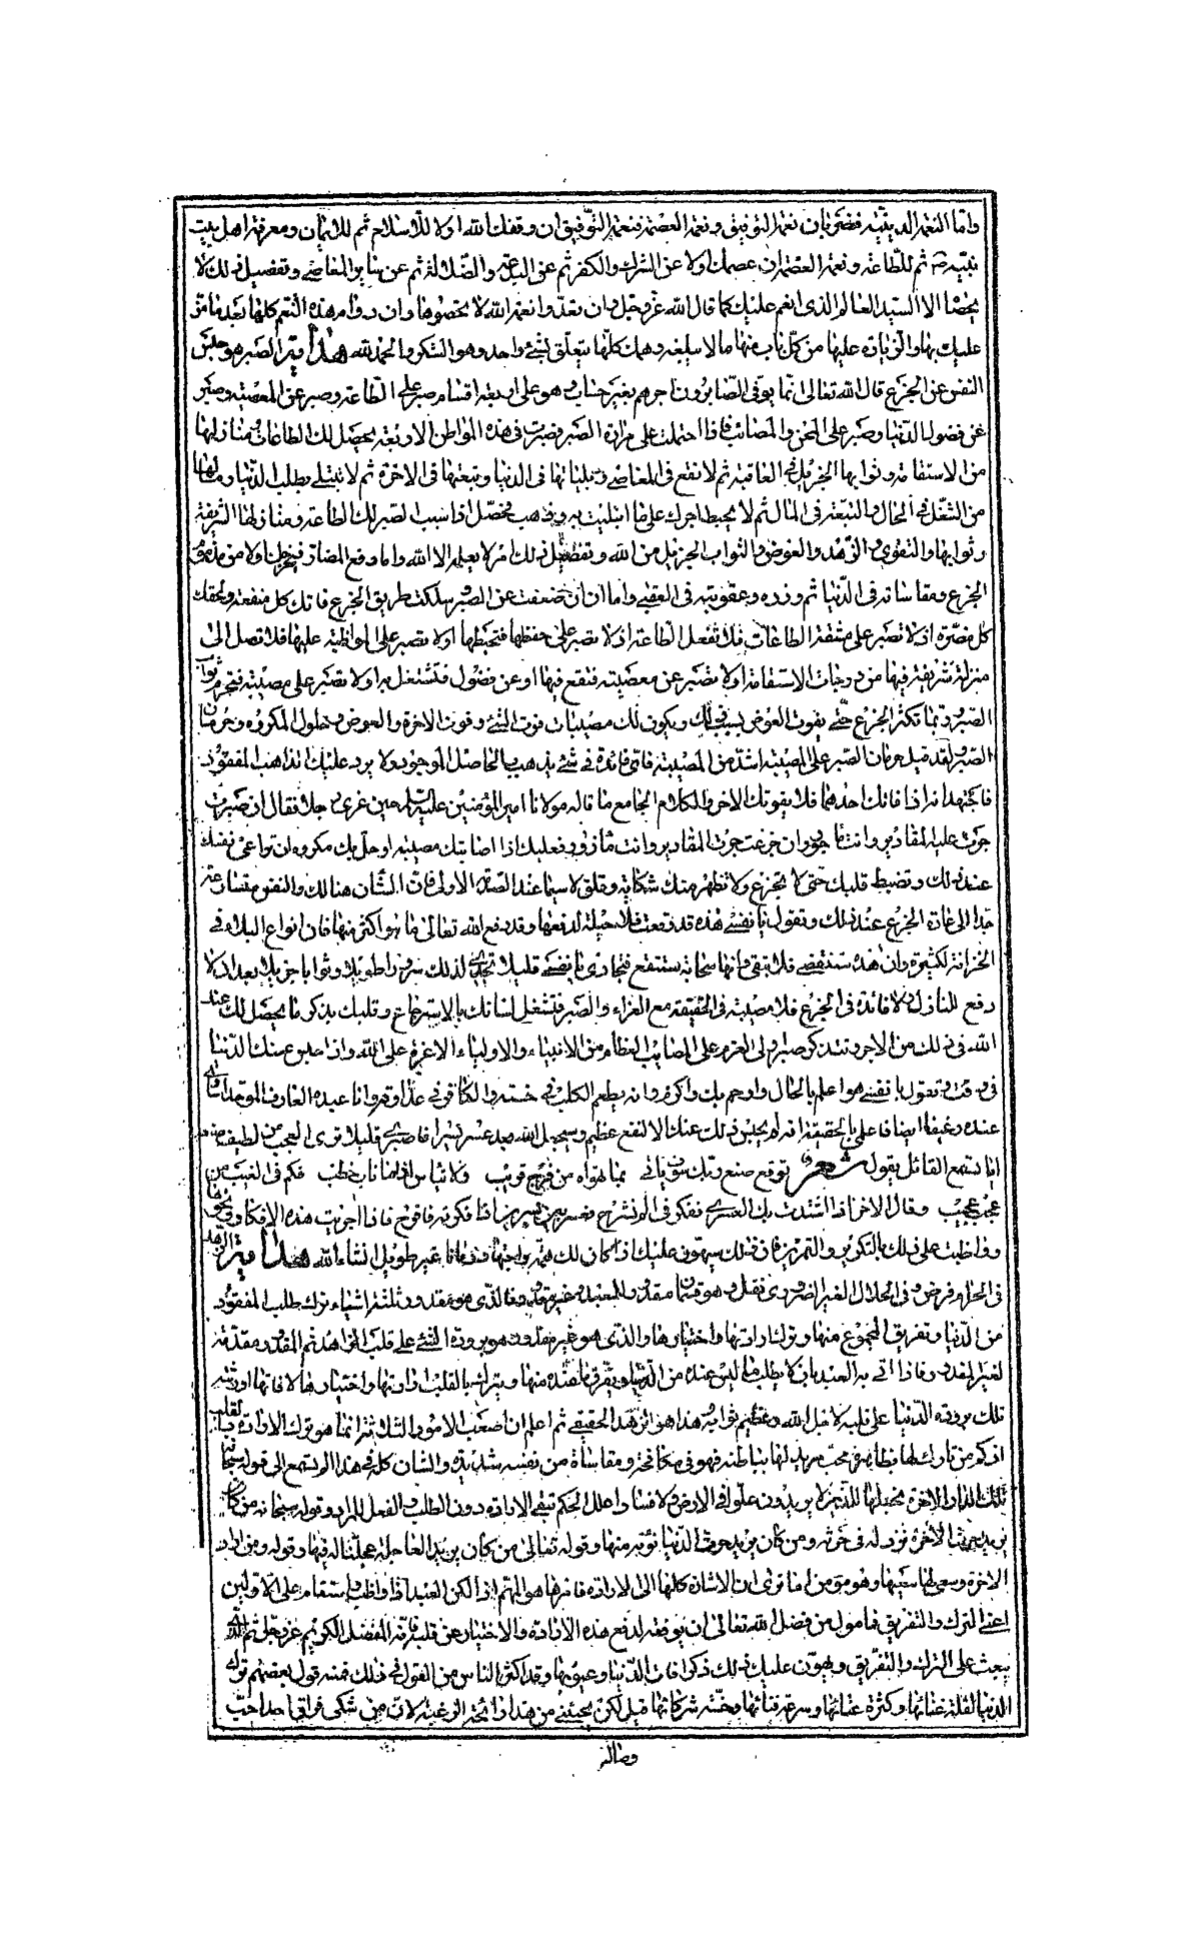 واما النعمة الدينية فضربان نعمة التوفيق ونعمة العصمة فنعمة التوفيق ان وفقك الله اولا للاسلام ثم للايمان ومعرفة اهل بيت
نبيه ص ثم للطاعة ونعمة العصمة ان عصمك اولا عن الشرك والكفر ثم عن البدعة والضلالة ثم عن سائر المعاصي وتفصيل ذلك لا
يحصا الا السيد العالم الذي انعم عليك كما قال الله عز وجل وان تعدوا نعمة الله لا تحصوها وان دوام هذه النعم كلها بعد ما من
عليك بها والزيادة عليها من كل باب منها ما لا يبلغه وهمك كلها يتعلق بشئ واحد وهو الشكر والحمد لله هداية الصبر هو حبس
النفس عن الجزع قال الله تعالى انما يوفى الصابرون اجرهم بغير حساب وهو على اربعة اقسام صبر على الطاعة وصبر عن المعصية وصبر
عن فضول الدنيا وصبر على المحن والمصائب فاذا احتملت على مرارة الصبر وصبرت في هذه المواطن الاربعة يحصل لك الطاعات ومنازلها
من الاستقامة وثوابها الجزيل في العاقبة ثم لا تقع في المعاصي وبلياتها في الدنيا وتبعتها في الاخرة ثم لا تبتلى بطلب الدنيا وما لها
من الشغل في الحال والتبعة في المال ثم لا يحبط اجرك على ما ابتليت به وذهب فحصل اذا بسبب الصبر لك الطاعة ومنازلها الشريفة
وثوابها والتقوى والزهد والعوض والثواب الجزيل من الله وتفصيل ذلك امر لا يعلمه الا الله واما دفع المضار فيريحك اولا من مذمة
الجزع ومقاساته في الدنيا ثم وزره وعقوبته في العقبى واما ان ضعفت عن الصبر وسلكت طريق الجزع فاتك كل منفعة ولحقك
كل مضرة اذ لا تصبر على مشقة الطاعات فلا تفعل الطاعة او لا تصبر على حفظها فتحبطها او لا تصبر على المواظبة عليها فلا تصل الى
منزلة شريفة فيها من درجات الاستقامة او لا تصبر عن معصيته فتقع فيها او عن فضول فتشتغل به او لا تصبر على مصيبته فتحرم ثواب
الصبر وربما تكثر الجزع حتى يفوت العوض بسبب ذلك ويكون لك مصيبات فوت الشئ وفوت الاخرة والعوض وحلول المكروه وحرمان
الصبر ولقد قيل حرمان الصبر على المصيبة اشد من المصيبة فاي فائدة في شئ يذهب بالحاصل الموجود ولا يرد عليك الذاهب المفقود
فاجتهد انه اذا فاتك احدهما فلا يفوتك الاخر والكلام الجامع ما قاله مولانا امير المؤمنين عليه السلم حين عزى رجلا فقال ان صبرت
جرت عليك المقادير وانت ماجور وان جزعت جرت المقادير وانت مازور فعليك اذا اصابتك مصيبة او حل بك مكروه ان تراعى نفسك
عند ذلك وتضبط قلبك حتى لا تجزع ولا تظهر منك شكاية وقلق لا سيما عند الصدمة الاولى فان الشان هنالك والنفس متسارعة
جدا الى عادة الجزع عند ذلك وتقول يا نفس هذه قد وقعت فلا حيلة لدفعها وقد دفع الله تعالى ما هو اكثر منها فان انواع البلاء في
الخزانة لكثيرة وان هذه ستنقضي فلا تبقى وانها سحابة ستنقشع فتجلدي يا نفس قليلا تجدي لذلك سرورا طويلا وثوابا جزيلا بعد ان لا
دفع للنازل ولا فائدة في الجزع فلا مصيبة في الحقيقة مع العزاء والصبر فتشغل لسانك بالاسترجاع وقلبك بذكر ما يحصل لك عند
الله في ذلك من الاجر وتتذكر صبر اولى العزم على المصائب العظام من الانبياء والاولياء الاعزة على الله واذا حبس عنك الدنيا
في وقت فتقول يا نفس هو اعلم بالحال وارحم بك واكرم وانه يطعم الكلب في خسته والكافر في عداوته وانا عبده العارف الموحد
عنده رغيفا ايضا فاعلمي بالحقيقة انه لم يحبس ذلك عنك الا لنفع عظيم وسيجعل الله بعد عسر يسرا فاصبري قليلا ترى العجب من لطيف صنعه
اما تستمع القائل يقول شعر توقع صنع ربك سوف ياتى بما تهواه من فرج قريب ولا تياس اذا ما ناب خطب فكم في الغيب من
عجب عجيب وقال الاخر اذا اشتدت بك العسرى ففكر في الم نشرح فعسر بين يسرين اذا فكرته فافرح فاذا اجريت هذه الافكار ونحوها
وواظبت على ذلك بالتكرير والتمرين فان ذلك سيهون عليك اذا كان لك همة واجتهاد زمانا غير طويل انشاء الله هداية الزهد
في الحرام فرض وفي الحلال الغير الضروري نفل وهو قسمان مقدور للعبد وغير مقدور فالذي هو مقدور ثلثة اشياء ترك طلب المفقود
من الدنيا وتفريق المجموع منها وترك ارادتها واختيارها والذي هو غير مقدور هو برودة الشئ على قلب الزاهد ثم المقدور مقدمة
لغير المقدور فاذا اتى به العبد بان لا يطلب ما ليس عنده من الدنيا ويفرق ما عنده منها ويترك بالقلب ارادتها واختيارها لافاتها اورثته
تلك برودة الدنيا على قلبه لاجل الله وعظيم ثوابه هذا هو الزهد الحقيقي ثم اعلم ان اصعب الامور الثلثة انما هو ترك الارادة بالقلب
اذ كم من تارك لها بظاهره محب مريد لها بباطنه فهو في مكافحة ومقاساة من نفسه شديدة والشان كله في هذا الم تستمع الى قوله سبحانه
تلك الدار الاخرة نجعلها للذين لا يريدون علوا في الارض ولا فسادا علل الحكم بنفي الارادة دون الطلب والفعل للمراد وقوله سبحانه من كان
يريد حرث الاخرة نزد له في حرثه ومن كان يريد حرث الدنيا نؤته منها وقوله تعالى من كان يريد العاجلة عجلنا له فيها وقوله ومن اراد
الاخرة وسعى لها سعيها وهو مؤمن اما ترى ان الاشارة كلها الى الارادة فامرها هو المهم اذا لكن العبد اذا واظب واستقام على الاولين
اعني الترك والتفريق فمامول من فضل الله تعالى ان يوفقه لدفع هذه الارادة والاختيار عن قلبه فانه المفضل الكريم عز وجل ثم الذي
يبعث على الترك والتفريق ويهون عليك ذلك ذكر افات الدنيا وعيوبها وقد اكثر الناس من القول في ذلك فمنه قول بعضهم تركت
الدنيا لقلة غنائها وكثرة عنائها وسرعة فنائها وخسة شركائها قيل لكن يجيئني من هذا رائحة الرغبة لان من شكى فراق احد احب
وصاله